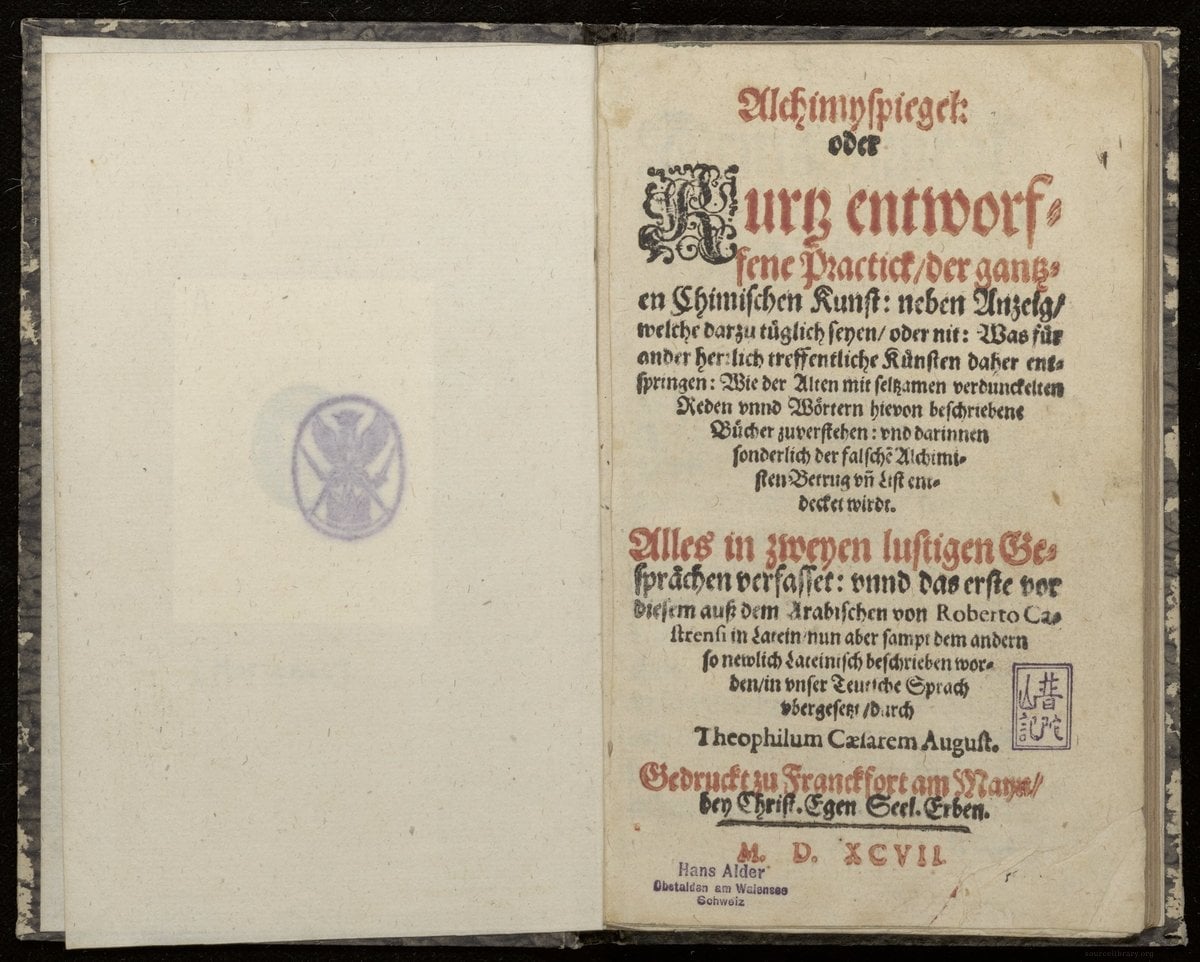 Alchimyspiegel:
oder
Kurtz entworf-
fene Practick/der gantz-
en Chimischen Kunst: neben Anzeig/
welche darzu tüglich seyen/ oder nit: Was für
ander herrlich treffentliche Künsten daher ent-
springen: Wie der Alten mit seltzamen verdunckelten
Reden vnnd Wörtern hievon beschriebene
Bücher zuverstehen: vnd darinnen
sonderlich der falschẽ Alchimi-
sten Betrug vñ List ent-
decket wirdt.
Alles in zweyen lustigen Ge-
sprächen verfasset: vnnd das erste vor
diesem auß dem Arabischen von Roberto Ca-
strensi in Latein/nun aber sampt dem andern
so newlich Lateinisch beschrieben wor-
den/in vnser Teutsche Sprach
vbergesetzt/durch
Theophilum Cæsarem August.
Gedruckt zu Franckfort am Mayn/
bey Christ. Egen. Seel. Erben.
M. D. XCVII
普陀
山記
Hans Alder
Obstalden am Walensee
Schweiz
sourcelibrary.org